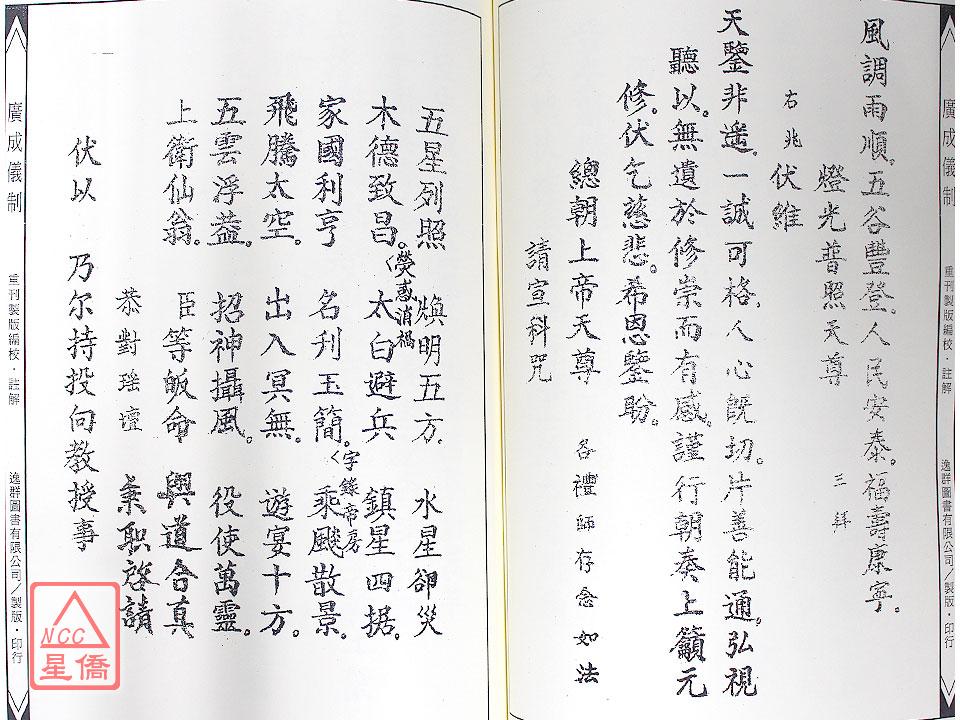 廣成儀制
重刊製版編校・註解
逸群圖書有限公司／製版・印行
風調雨順。五谷豐登。人民安泰。福壽康寧。
燈光普照天尊 三拜
右兆 伏維
天鑒非遥。一誠可格。人心既切。片善能通。弘視
聽以。無遺於修崇而有感。謹行朝奏上籲元
修。伏乞慈悲。希恩鑒盼。
總朝上帝天尊 各禮師存念如法
請宣科咒
五星列照 煥明五方. 水星卻災
木德致昌。〈熒惑消禍 太白避兵 鎮星四据。
家國利亨 名刊玉簡。〈字錄帝房 乘飈散景。
飛騰太空。 出入冥無。 遊宴十方。
五雲浮葢。 招神攝風。 役使萬靈。
上衛仙翁。 臣等皈命 與道合真
恭對瑶壇 秉職啓請
伏以 乃尔持投向教授事
廣成儀制
重刊製版編校・註解
逸群圖書有限公司／製版・印行
NCC
星僑